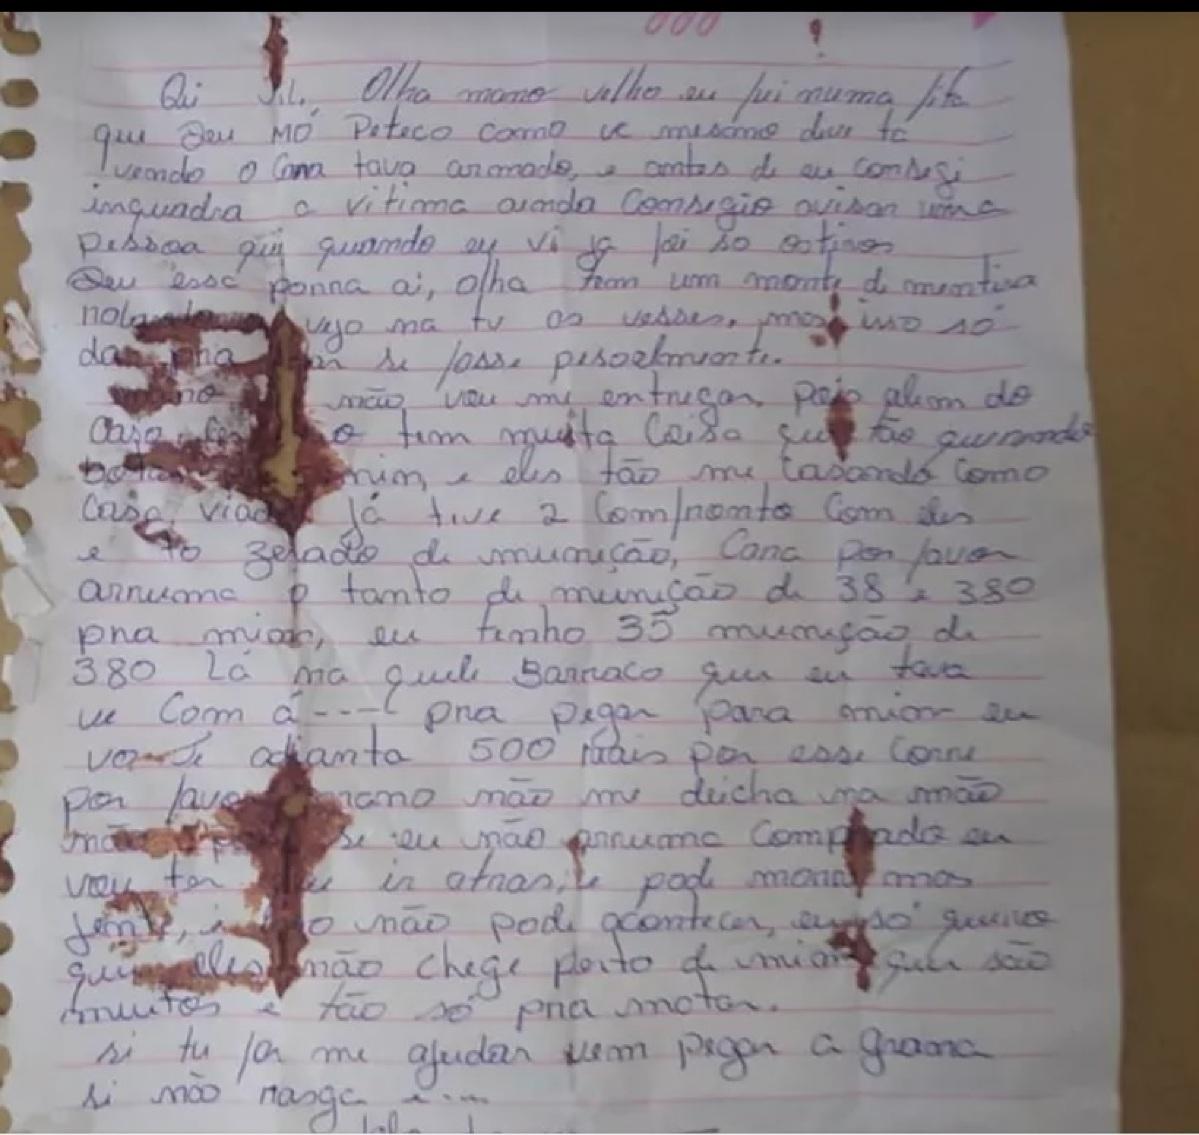 Olha mano velho eu fui numa fita
que Deu MÓ Peteco como vc mesmo deve tá
vendo o Cana tava armado, e antes de eu consegi
inquadra a vitima ainda Consegio avisar uma
pessoa qui quando eu vi ja foi so os tiros
Deu essa porra ai, olha tem um monte de mentira
vejo na tv as vesses, mas isso só
se fosse pesoelmente.
não vou me entregar, pois alem do
Caso tem muita Coisa que tão querendo
mim, e eles tão me Casando Como
Casa viado Já tive 2 Comfronto Com eles
e to zerado de munição, Cara por favor
arruma o tanto de munição de 38 e 380
pra mior, eu tenho 35 munição de
380 Lá na quele Barraco que eu tava
ve Com á---- pra pegar para mior eu
vo Te adianta 500 mais por esse Corre
por favor mano não me deicha na mão
se eu não arruma Comprado eu
vou ter ir atras, e pode morre mas
jente, não pode acontecer, eu só queiro
que eles não chege perto de mior que são
muitos e tão só pra matar.
si tu for me ajudar vem pegar a grana
si não rasga e...